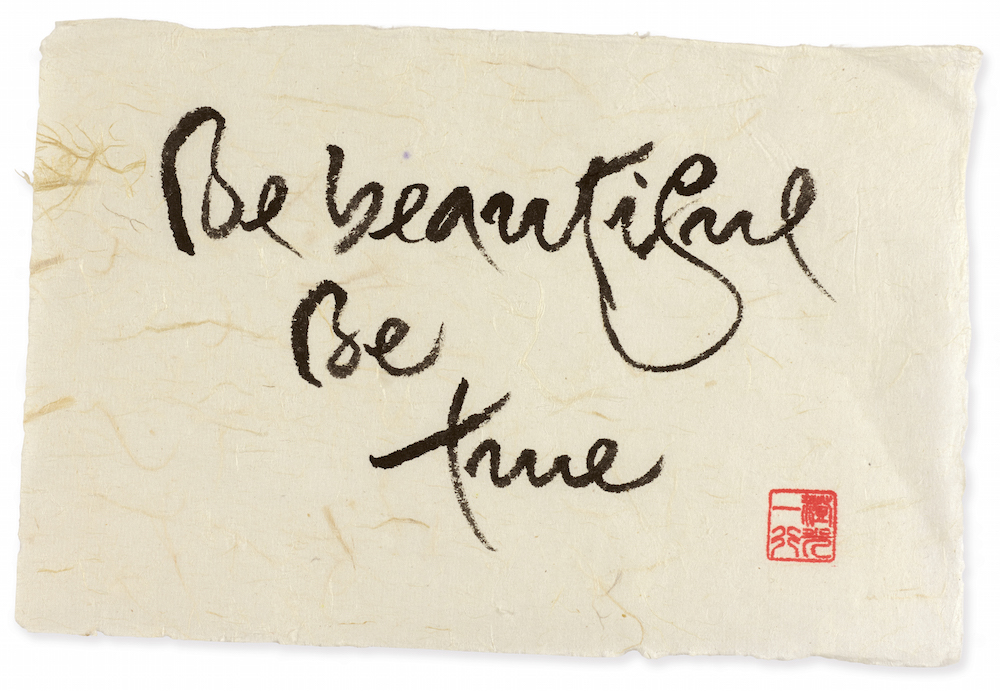 Be beautiful
Be
true
澄光
一行